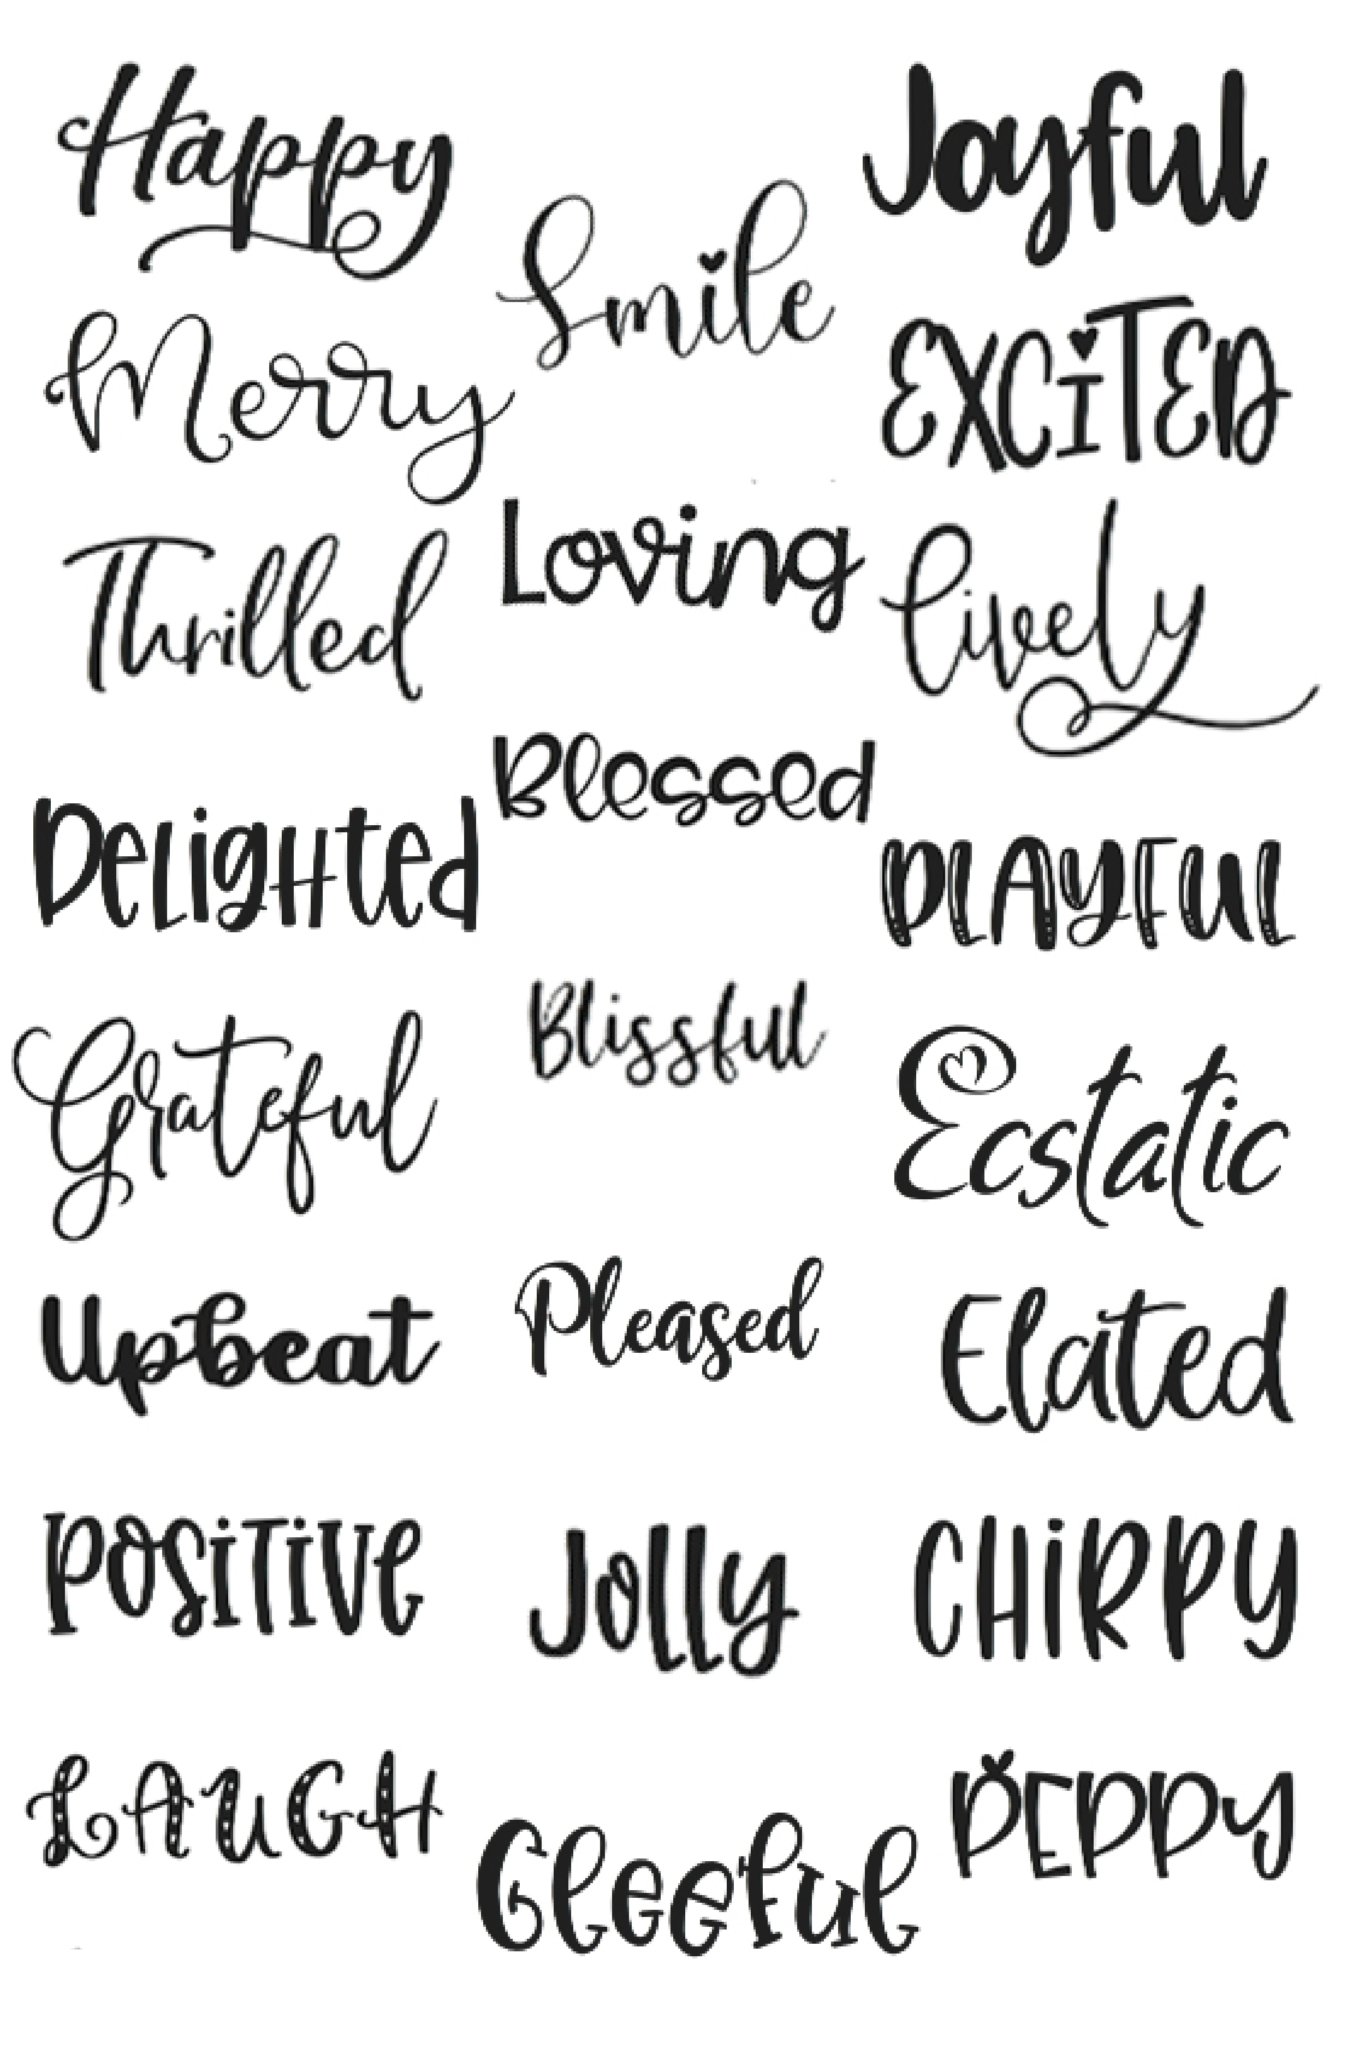 Happy
Joyful
Smile
Merry
EXCiTED
Loving
Thrilled
lively
Blessed
DeLigHted
PLAYFUL
Blissful
Grateful
Ecstatic
Pleased
Upbeat
Elated
POSiTiVe
Jolly
CHiRPY
LAUGH
PEPPY
Gleeful